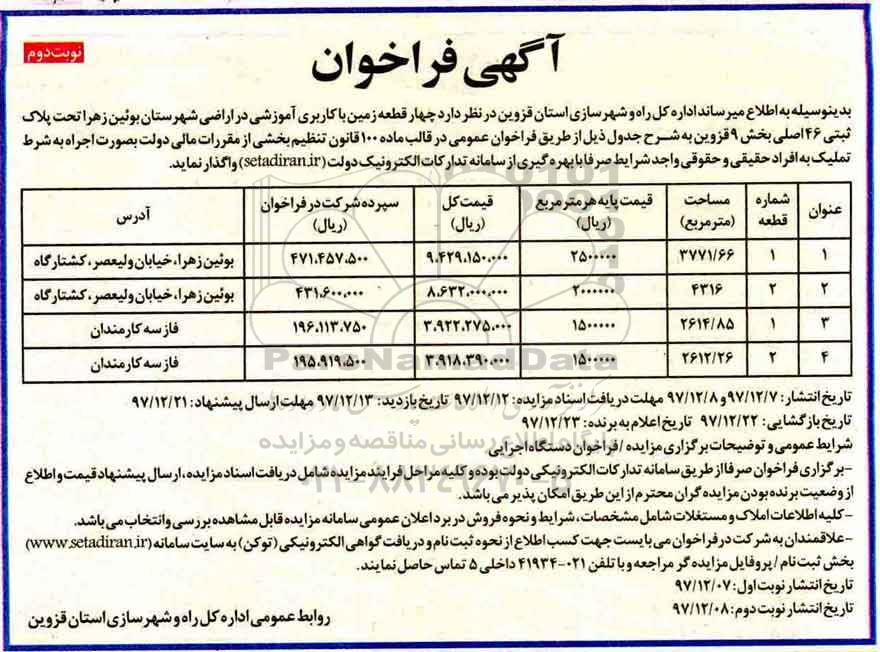 نوبت دوم
آگهی فراخوان
بدینوسیله به اطلاع میرساند اداره کل راه و شهرسازی استان قزوین در نظر دارد چهار قطعه زمین با کاربری آموزشی در اراضی شهرستان بوئین زهرا تحت پلاک
ثبتی ۴۶ اصلی بخش ۹ قزوین به شرح جدول ذیل از طریق فراخوان عمومی در قالب ماده ۱۰۰ قانون تنظیم بخشی از مقررات مالی دولت بصورت اجراه به شرط
تملیک به افراد حقیقی و حقوقی واجد شرایط صرفا با بهره گیری از سامانه تدارکات الکترونیک دولت (setadiran.ir) واگذار نماید.
عنوان | شماره قطعه | مساحت (مترمربع) | قیمت پایه هر متر مربع (ریال) | قیمت کل (ریال) | سپرده شرکت در فراخوان (ریال) | آدرس
۱ | ۱ | ۳۷۷۱/۶۶ | ۲۵۰۰۰۰۰ | ۹،۴۲۹،۱۵۰،۰۰۰ | ۴۷۱،۴۵۷،۵۰۰ | بوئین زهرا، خیابان ولیعصر، کشتارگاه
۲ | ۲ | ۴۳۱۶ | ۲۰۰۰۰۰۰ | ۸،۶۳۲،۰۰۰،۰۰۰ | ۴۳۱،۶۰۰،۰۰۰ | بوئین زهرا، خیابان ولیعصر، کشتارگاه
۳ | ۱ | ۲۶۱۴/۸۵ | ۱۵۰۰۰۰۰ | ۳،۹۲۲،۲۷۵،۰۰۰ | ۱۹۶،۱۱۳،۷۵۰ | فاز سه کارمندان
۴ | ۲ | ۲۶۱۲/۲۶ | ۱۵۰۰۰۰۰ | ۳،۹۱۸،۳۹۰،۰۰۰ | ۱۹۵،۹۱۹،۵۰۰ | فاز سه کارمندان
ParsNamadData
تاریخ انتشار: ۹۷/۱۲/۷ و ۹۷/۱۲/۸ مهلت دریافت اسناد مزایده: ۹۷/۱۲/۱۲ تاریخ بازدید: ۹۷/۱۲/۱۳ مهلت ارسال پیشنهاد: ۹۷/۱۲/۲۱
تاریخ بازگشایی: ۹۷/۱۲/۲۲ تاریخ اعلام به برنده: ۹۷/۱۲/۲۳
پایگاه اطلاع رسانی مناقصه و مزایده
شرایط عمومی و توضیحات برگزاری مزایده / فراخوان دستگاه اجرایی
-برگزاری فراخوان صرفا از طریق سامانه تدارکات الکترونیکی دولت بوده و کلیه مراحل فرایند مزایده شامل دریافت اسناد مزایده، ارسال پیشنهاد قیمت و اطلاع
از وضعیت برنده بودن مزایده گران محترم از این طریق امکان پذیر می باشد.
-کلیه اطلاعات املاک و مستغلات شامل مشخصات، شرایط و نحوه فروش در برد اعلان عمومی سامانه مزایده قابل مشاهده بررسی و انتخاب می باشد.
-علاقمندان به شرکت در فراخوان می بایست جهت کسب اطلاع از نحوه ثبت نام و دریافت گواهی الکترونیکی (توکن) به سایت سامانه (www.setadiran.ir)
بخش ثبت نام / پروفایل مزایده گر مراجعه و با تلفن ۰۲۱-۴۱۹۳۴ داخلی ۵ تماس حاصل نمایند.
تاریخ انتشار نوبت اول: ۹۷/۱۲/۰۷
تاریخ انتشار نوبت دوم: ۹۷/۱۲/۰۸
روابط عمومی اداره کل راه و شهرسازی استان قزوین